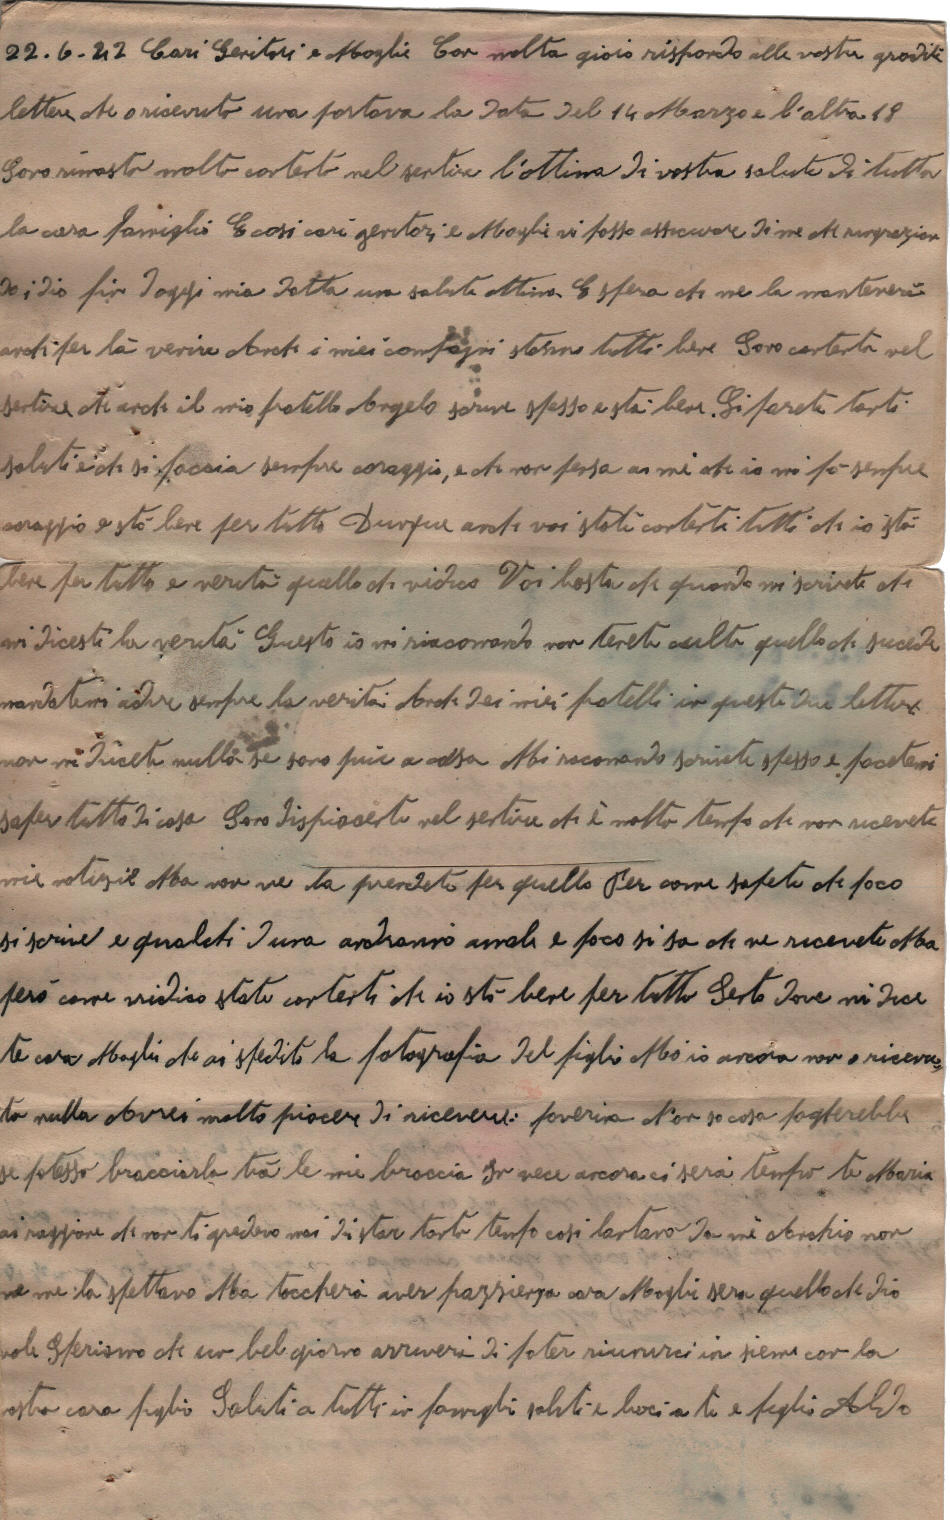 22.6.42 Cari Genitori e Moglie Con molta gioio rispondo alle vostre gradite
lettere che o ricevuto una portava la data del 14 Marzo e l'altra 18
Sono rimasto molto contento nel sentire l'ottima di vostra salute di tutta
la cara famiglia E cosi cari genitori e Moglie vi posso assicurare di me che ringrazian
do i dio fin doggi mia datta una salute ottima E spera che me la mantenera
anche per la venire Anche i miei compagni stanno tutti bene Sono contento nel
sentire che anche il mio fratello Angelo scrive spesso e sta bene. Gi farete tanti
saluti e che si faccia sempre coraggio, e che non pensa ai me che io mi fo sempre
coraggio e sto bene per tutto Dunque anche voi state contenti tutti che io stò
bene per tutto e verità quello che vidico Voi basta che quando mi scrivete che
mi dicesti la verita Questo io mi riacomando non tenete culto quello che sucede
mandatemi adire sempre la verità Anche dei miei fratelli in queste due lettere
non mi dicete nulla se sono piu a casa Mi racomando scrivete spesso e facetemi
saper tutto di casa Sono dispiacente nel sentire che è molto tempo che non ricevete
mie notizie Ma non ve la prendete per quello Per come sapete che poco
si scrive e qualchi duna andranno amale e poco si sa che ne ricevete Ma
però come vridico state contenti che io stò bene per tutto Serto dove mi dice
te cara Moglie che ai spedito la fotografia del figlio Mo io ancora non o riceva
to nulla Avrei molto piacere di riceverei poverina Non so cosa pagherebbe
se potesso bracciarla trà le mie braccia In vece ancora ci sera tempo te Maria
ai raggione che non ti gredevo mai di star tanto tempo cosi lontano da me Anchio non
me me la spettavo Ma toccherà aver pazzienza cara Moglie sera quello che dio
vole Speriamo che un bel giorno arrivera di poter riunirci in sieme con la
nostra cara figlio Saluti a tutti in famiglie saluti e baci a te e figlio Aldo